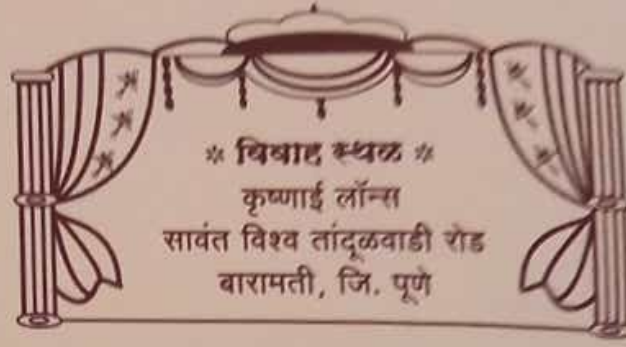 ❊ विवाह स्थळ ❊
कृष्णाई लॉन्स
सावंत विश्व तांदूळवाडी रोड
बारामती, जि. पूणे